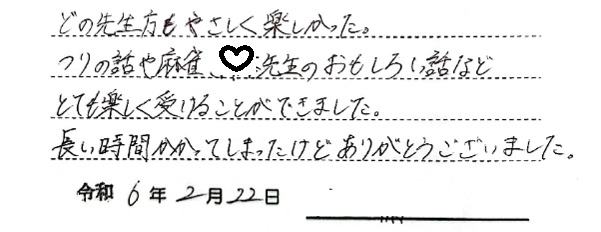 どの先生方もやさしく楽しかった。
つりの話や麻雀 先生のおもしろい話など
とても楽しく受けることができました。
長い時間かかってしまったけどありがとうございました。
令和 6年 2月 22日